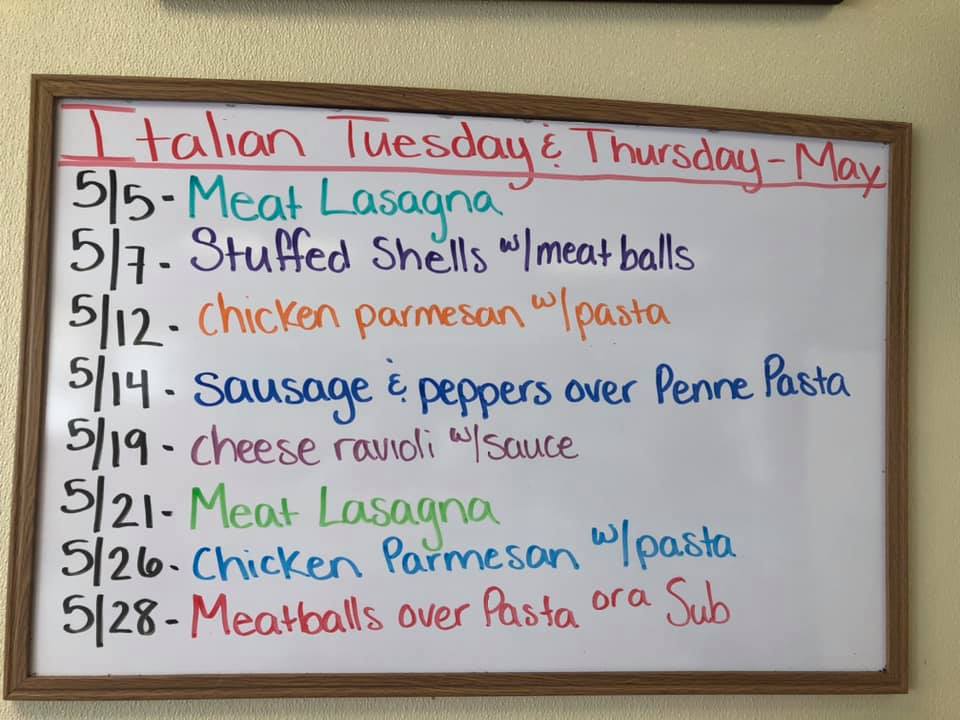 Italian Tuesday & Thursday - May
5/5 - Meat Lasagna
5/7 - Stuffed Shells w/meatballs
5/12 - chicken parmesan w/pasta
5/14 - sausage & peppers over Penne Pasta
5/19 - cheese ravioli w/sauce
5/21 - Meat Lasagna
5/26 - Chicken Parmesan w/pasta
5/28 - Meatballs over Pasta or a Sub